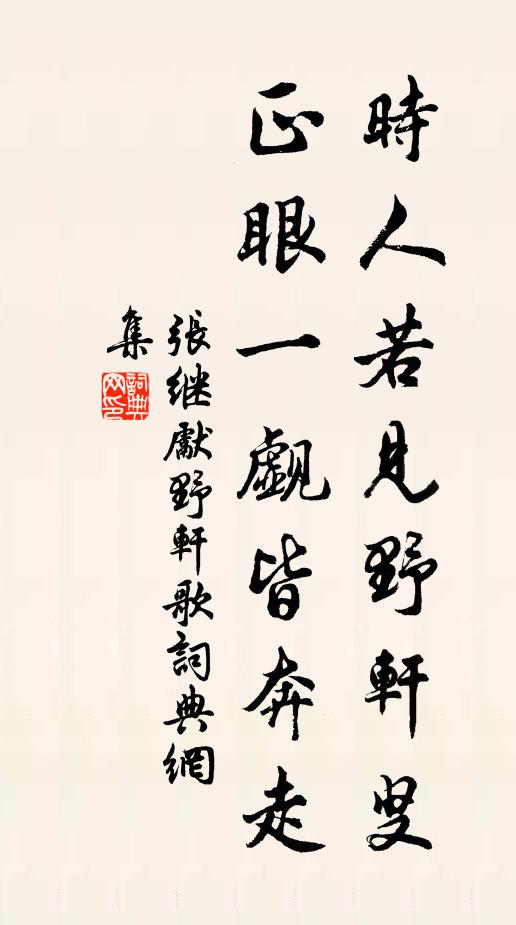 時人若見野軒叟
正眼一覷皆奔走
張继獻野軒歌詞典網
集
詞典
网印